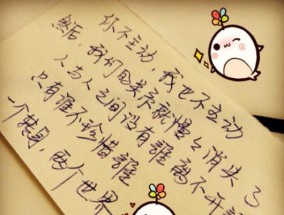 你不主动，我也不主动
然后，我们的关系就慢慢消失了
人与人之间没有谁离不开谁
只有谁不珍惜谁
一个转身，两个世界